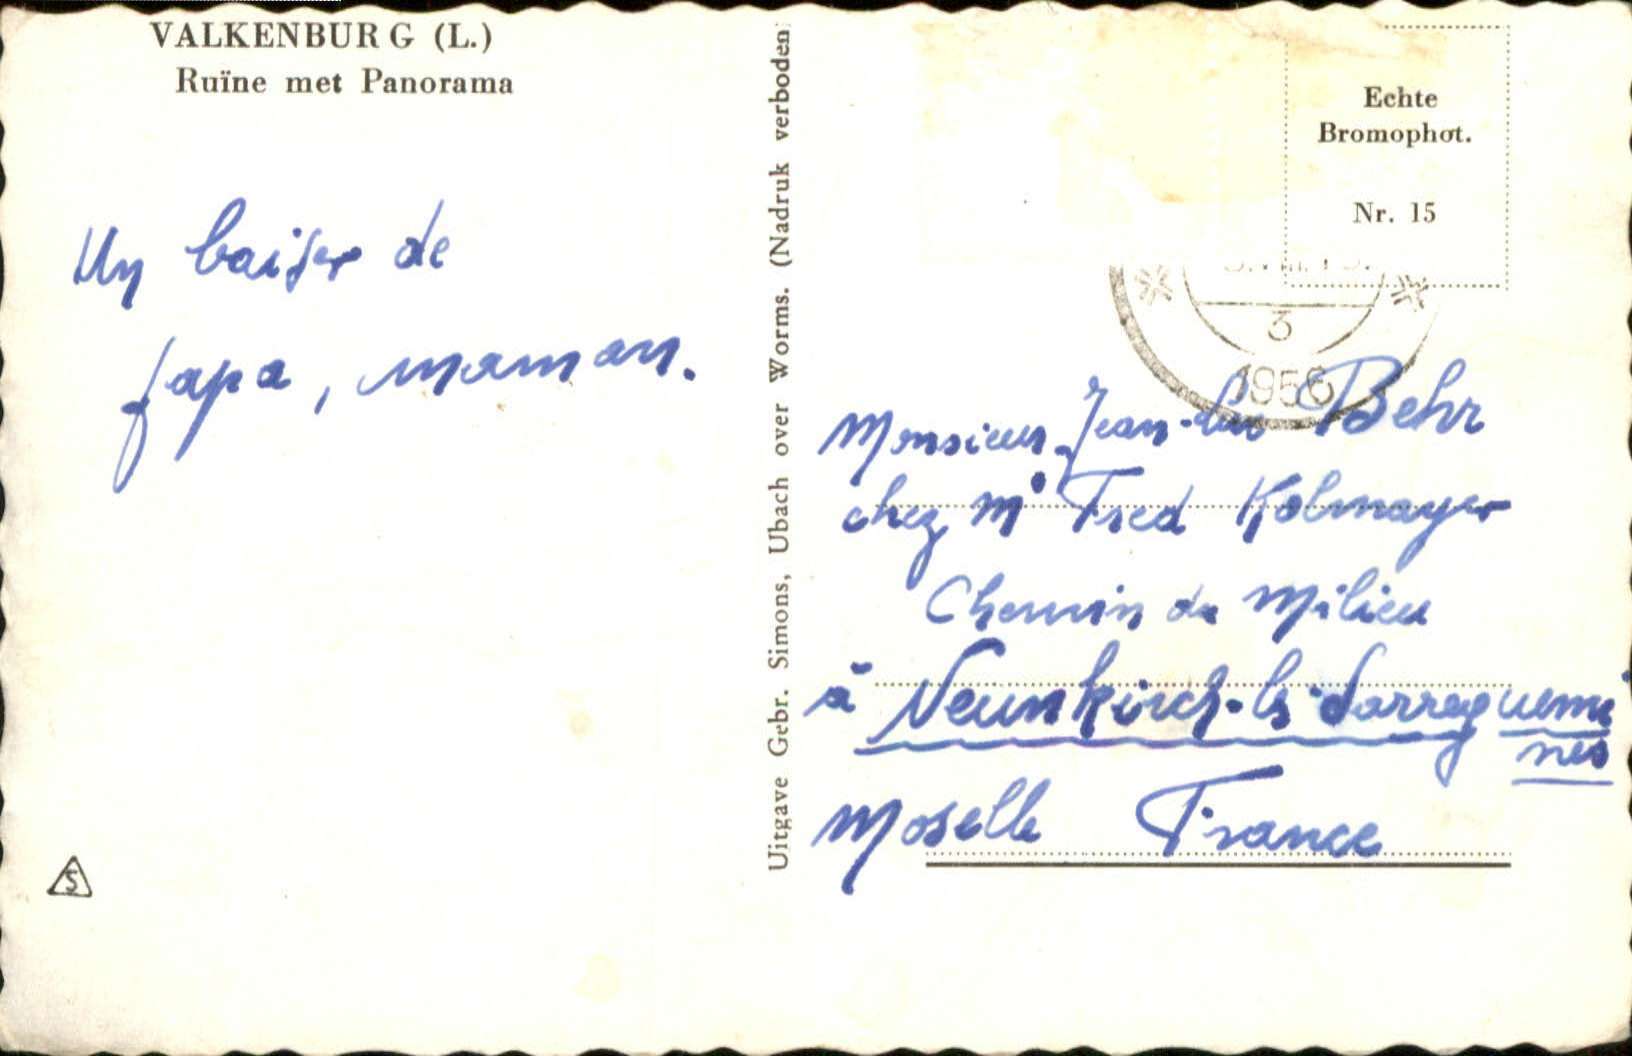 VALKENBURG (L.)
Ruïne met Panorama
Un baiser de
papa, maman.
Uitgave Gebr. Simons, Ubach over Worms. (Nadruk verboden)
Echte
Bromophot.
Nr. 15
3
1956
Monsieur Jean-Luc Behr
chez Mr Fred Kolmayer
Chemin du Milieu
à Neunkirch-ls Sarreguemi
nes
Moselle France
S